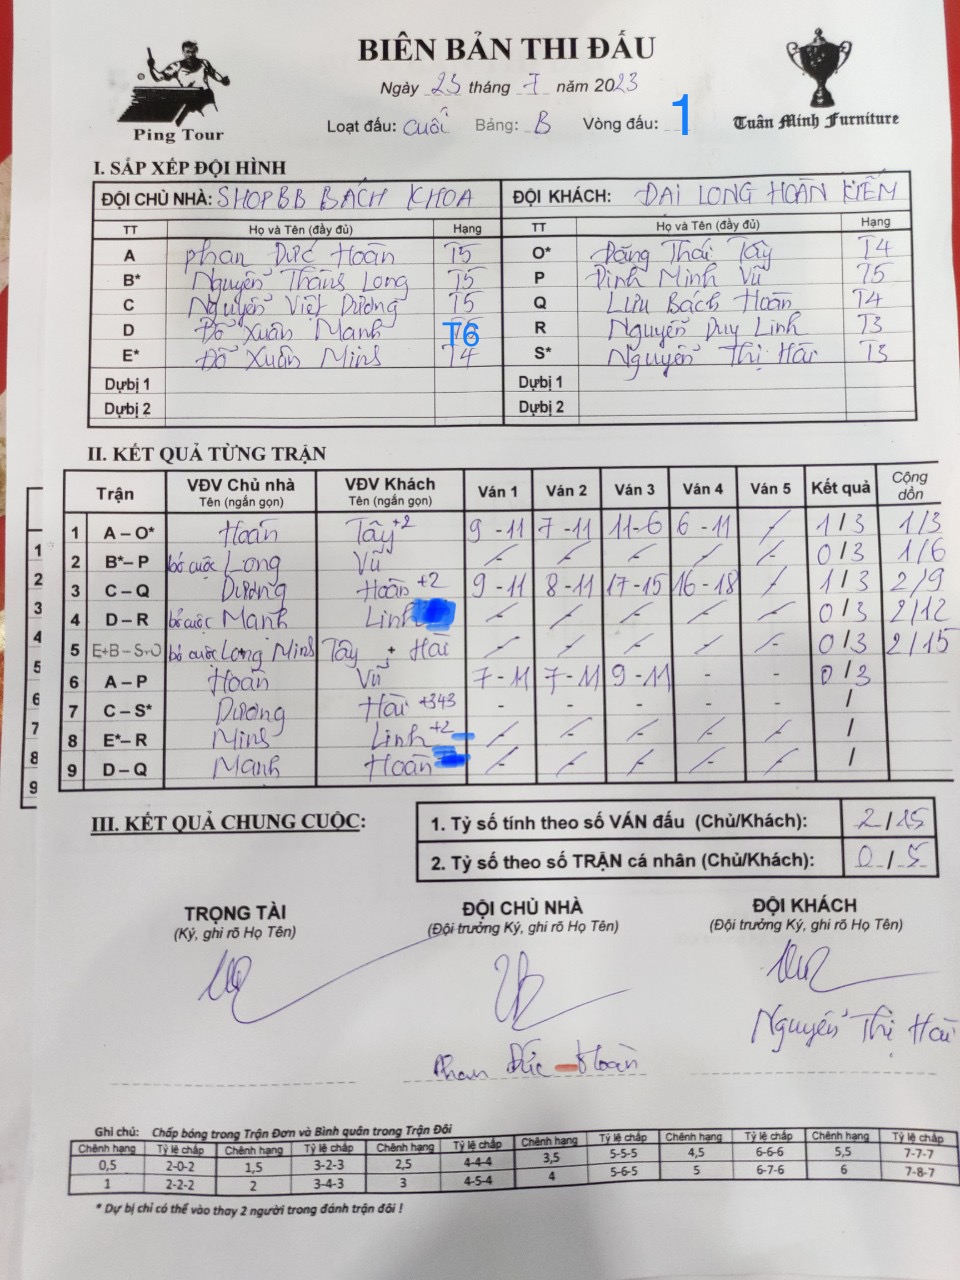 BIÊN BẢN THI ĐẤU
Ngày 23 tháng 7 năm 2023
Loạt đấu: Cuối Bảng: B Vòng đấu: 1
Ping Tour
Tuân Minh Furniture
I. SẮP XẾP ĐỘI HÌNH
ĐỘI CHỦ NHÀ: SHOPBB BÁCH KHOA ĐỘI KHÁCH: ĐẠI LONG HOÀN KIẾM
TT Họ và Tên (đầy đủ) Hạng TT Họ và Tên (đầy đủ) Hạng
A Phan Đức Hoàn T5 O* Đặng Thái Tây T4
B* Nguyễn Thăng Long T5 P Đinh Minh Vũ T5
C Nguyễn Việt Dương T5 Q Lưu Bách Hoàn T4
D Đỗ Xuân Mạnh T6 R Nguyễn Duy Linh T3
E* Đỗ Xuân Mins T4 S* Nguyễn Thị Hài T3
Dựbị 1 Dựbị 1
Dựbị 2 Dựbị 2
II. KẾT QUẢ TỪNG TRẬN
Trận VĐV Chủ nhà Tên (ngắn gọn) VĐV Khách Tên (ngắn gọn) Ván 1 Ván 2 Ván 3 Ván 4 Ván 5 Kết quả Cộng dồn
1 A – O* Hoàn Tây +2 9 - 11 7 - 11 11 - 6 6 - 11 / 1 / 3 1/3
2 B* – P bỏ cuộc Long Vũ 0 / 3 1/6
3 C – Q Dương Hoàn +2 9 - 11 8 - 11 17 - 15 16 - 18 / 1 / 3 2/9
4 D – R bỏ cuộc Mạnh Linh 0 / 3 2/12
5 E+B – S+O bỏ cuộc Long Mins Tây + Hài 0 / 3 2/15
6 A – P Hoàn Vũ 7 - 11 7 - 11 9 - 11 - - 0 / 3
7 C – S* Dương Hài +343 - - - - - /
8 E* – R Mins Linh +2 /
9 D – Q Mạnh Hoàn /
1
2
3
4
5
6
7
8
9
III. KẾT QUẢ CHUNG CUỘC:
1. Tỷ số tính theo số VÁN đấu (Chủ/Khách): 2 / 15
2. Tỷ số theo số TRẬN cá nhân (Chủ/Khách): 0 / 5
TRỌNG TÀI ĐỘI CHỦ NHÀ ĐỘI KHÁCH
(Ký, ghi rõ Họ Tên) (Đội trưởng Ký, ghi rõ Họ Tên) (Đội trưởng Ký, ghi rõ Họ Tên)
Phan Đức Hoàn Nguyễn Thị Hài
Ghi chú: Chấp bóng trong Trận Đơn và Bình quân trong Trận Đôi
Chênh hạng Tỷ lệ chấp Chênh hạng Tỷ lệ chấp Chênh hạng Tỷ lệ chấp Chênh hạng Tỷ lệ chấp Chênh hạng Tỷ lệ chấp Chênh hạng Tỷ lệ chấp
0,5 2-0-2 1,5 3-2-3 2,5 4-4-4 3,5 5-5-5 4,5 6-6-6 5,5 7-7-7
1 2-2-2 2 3-4-3 3 4-5-4 4 5-6-5 5 6-7-6 6 7-8-7
* Dự bị chỉ có thể vào thay 2 người trong đánh trận đôi !